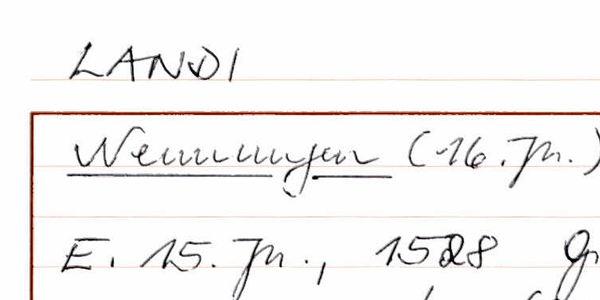 LANDI
Wemmingen (16. Jh.)
E. 15. Jh., 1528